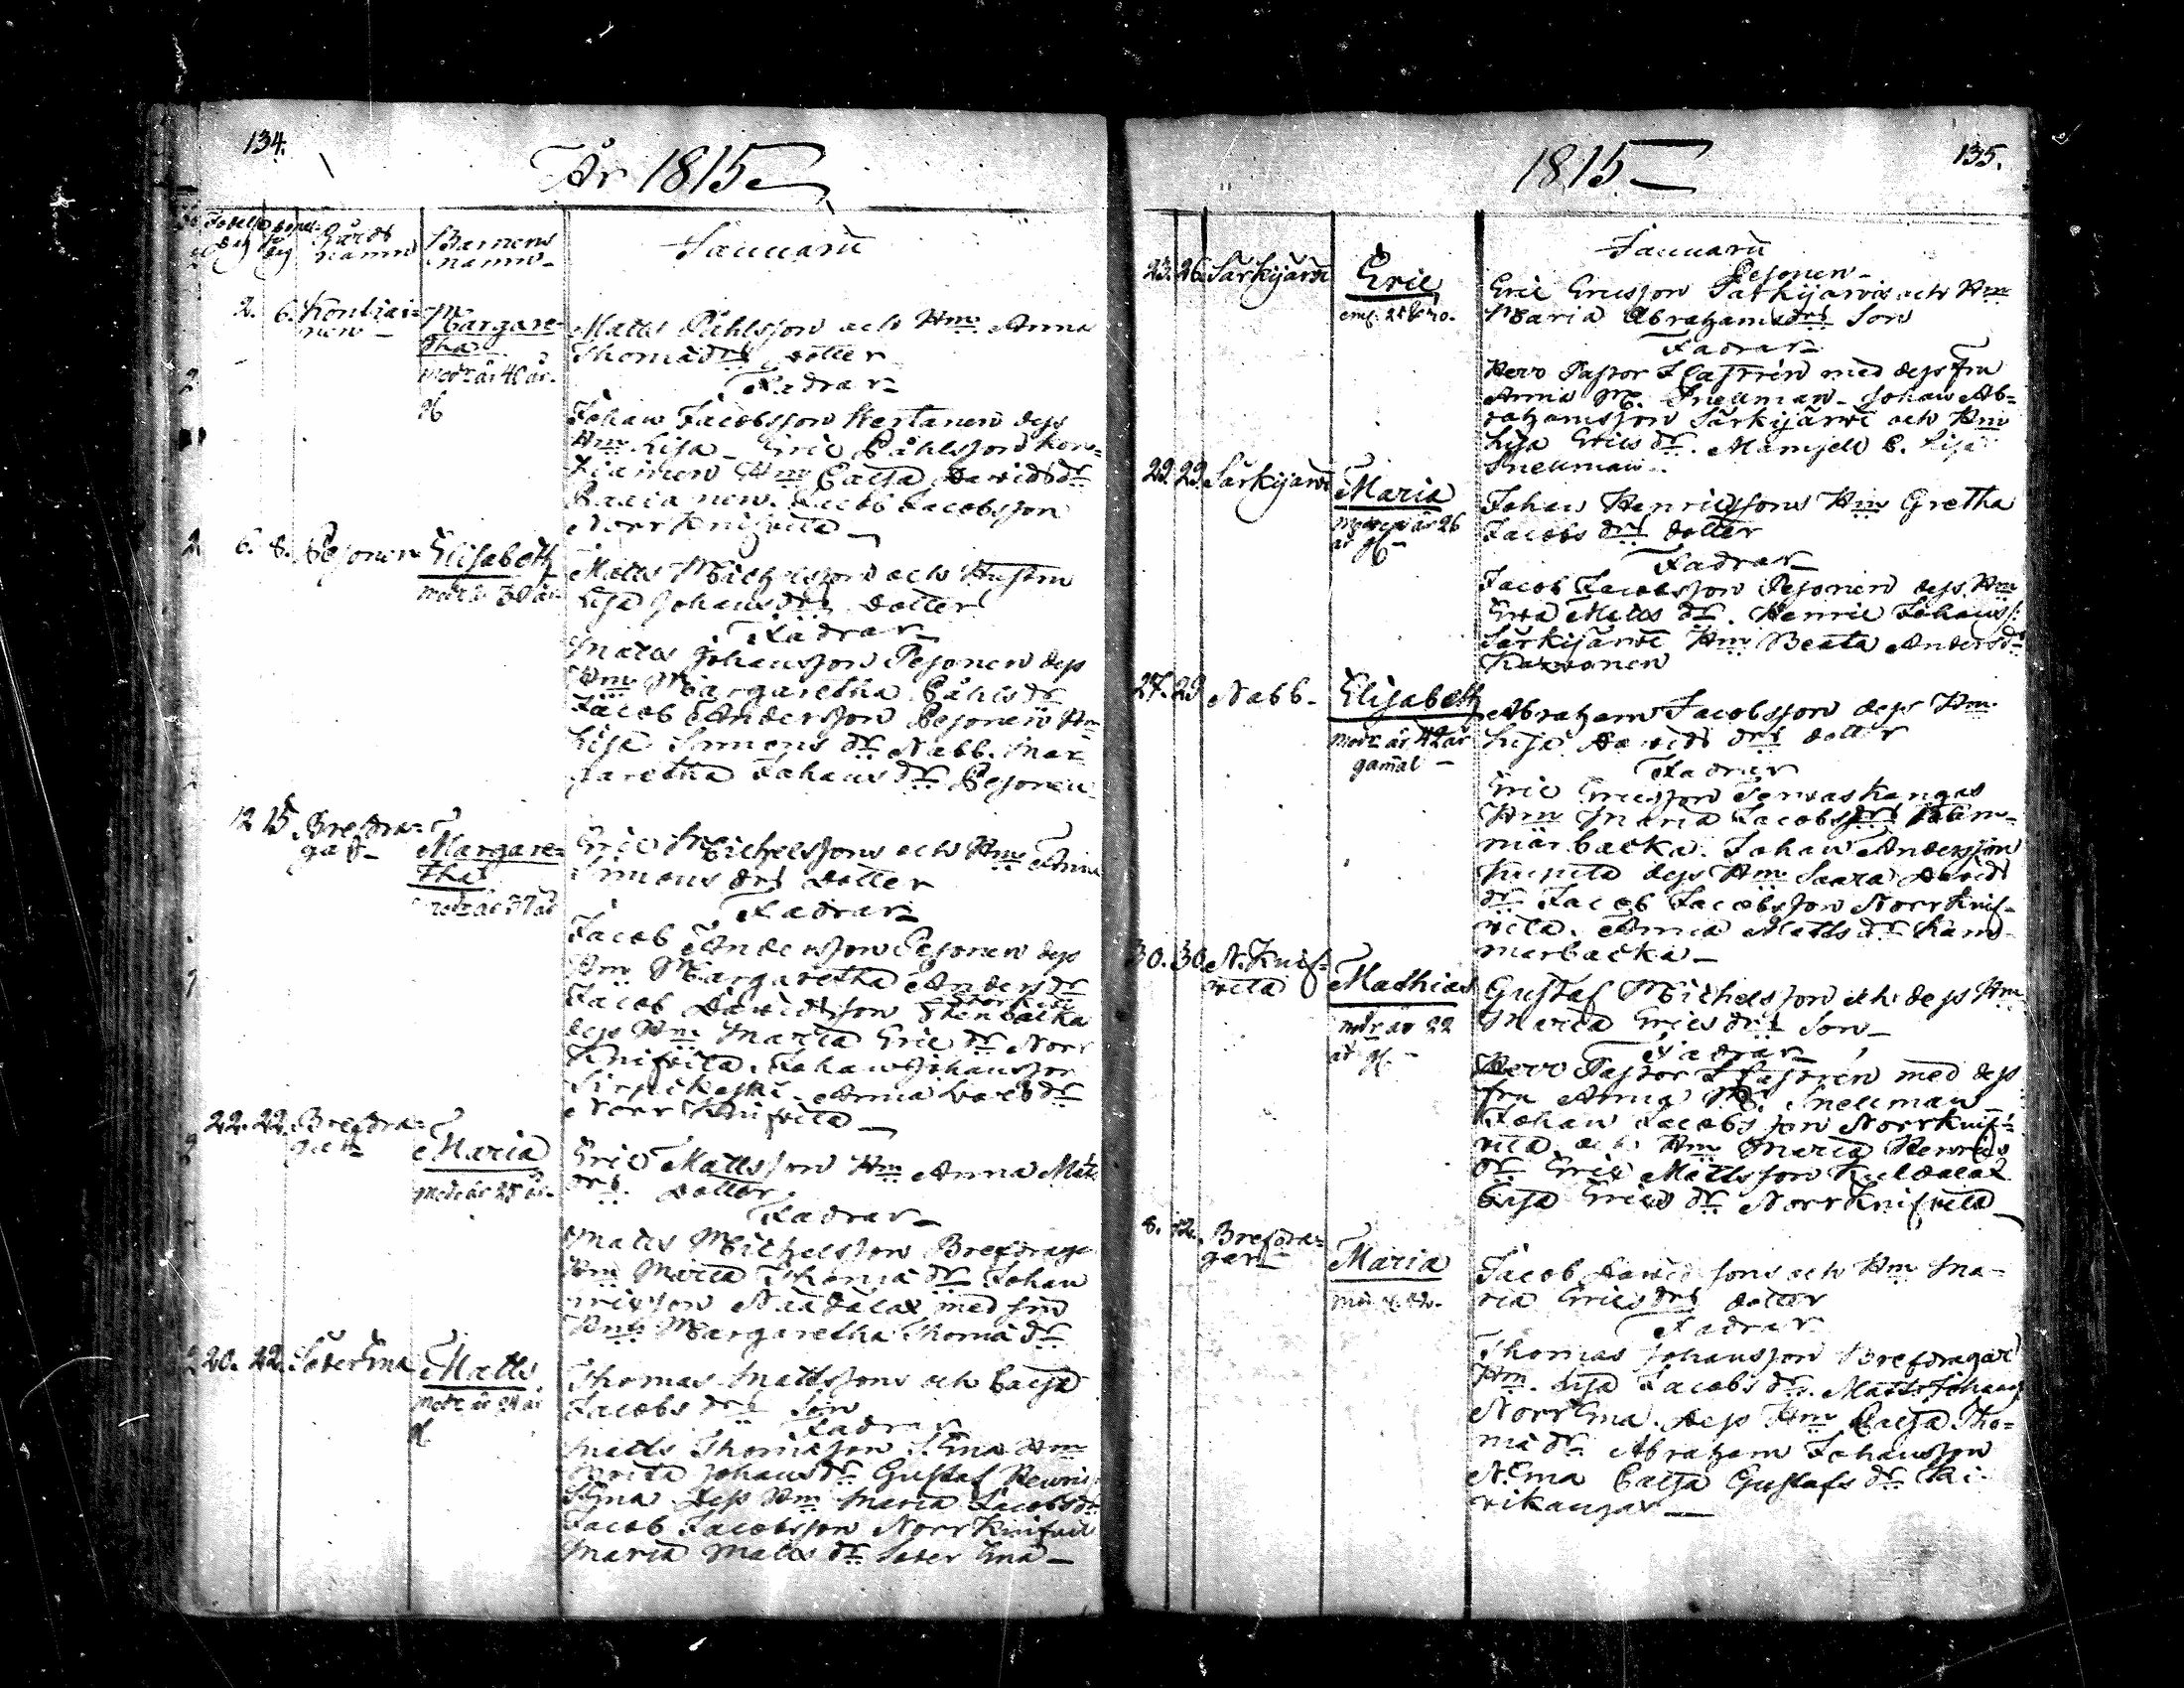 134.
År 1815
Födelse dag
Döpelse dag
Gårds namn
Barnens namn
Januarii
2. 6. Kontiai=
nen
Margare=
tha
Modr är 40 år.
Matts Påhlsson och Hm Anna
Thomædrs dotter
Fadrar
Johan Jacobsson Kertanen dess
Hm Lisa Eric Påhlsson Kon=
tiainen Hm Caisa Davidsdr
Jacob Jacobsson
Norr Knifvila
6. 8. Pesonen
Elisabeth
Modr är 30 år
Matts Michelsson och Hustru
Lisa Johansdrs dotter
Fadrar
Matts Johansson Pesonen dess
Hm Margaretha Påhlsdr
Jacob Andersson Pesonen Hm
Lisa Simonsdr Nabb. Mar=
garetha Johansdr Pesonen
12 15 Brefdra=
gar
Margare=
tha
modr är 37 år
Eric Michelssons och Hm Anna
Simonsdrs dotter
Fadrar
Jacob Andersson Pesonen dess
Hm Margaretha Andersdr
Jacob Davidsson Stenbacka
dess Hm Maria Ericsdr Norr
Knifvila. Johan Johansson
Sirpikoski. Anna Larsdr
Norr Knifvila
22. 22. Brefdra=
gar
Maria
Modr är 25 år.
Eric Mattsson Hm Anna Matts
drs. dotter
Fadrar
Matts Michelsson Brefdragar
Hm Maria Thomædr Johan
Ericsson med sin
Hm Margaretha Thomædr
20. 22. Söterÿna
Matts
Modr är 24 år
gl
Thomas Mattssons och Caisa
Jacobsdrs Son
Fadrar
Matts Thomæson Hm
Brita Johansdr Gustaf Henrics
dess Hm Maria Jacobsdr
Jacob Jacobsson Norr Knifvil
Maria Mattsdr
1815
135.
Januarii
23. 26. Särkijärvi
Eric
Pesonen
Eric Ericsson Särkijärvis och Hm
Maria Abrahamsdrs Son
Fadrar
Herr Pastor Castrén med dess Fru
Anna M. Snellman. Johan Ab=
rahamsson Särkijärvi och Hm
Lisa Ericsdr. Mamsell C. Lisa
Snellman.
29. 29. Särkijärvi
Maria
Modren är 26
år gl
Johan Henricssons Hm Gretha
Jacobsdrs dotter
Fadrar
Jacob Jacobsson Pesonen dess Hm
Mattsdr. Henric Johanss:
Särkijärvi Hm Beata Andersdr
Karvonen
27. 29 Nabb
Elisabeth
Modr är 42 år
gamal
Abraham Jacobsson dess Hm
Lisa Davidsdrs dotter
Fadrar
Eric Ericsson Servaskangas
Hm Maria Jacobsdrs Ham=
marbacka. Johan Andersson
dess Hm Saara Davids
dr Jacob Jacobsson Norrknif=
vila. Anna Mattsdr Ham=
marbacka
30. 30. N. Knif=
vila
Mathias
modr är 22
år gl.
Gustaf Michelsson och dess Hm
Maria Ericsdrs Son
Fadrar
Herr Pastor Castrén med dess
fru Anna M. Snellman
Johan Jacobsson Norrknif=
vila och Hm Maria Henrics
dr Eric Mattsson
Caisa Ericsdr Norrknifvila
8. 12. Brefdra=
gar
Maria
Jacob Davidssons och Hm Ma=
ria Ericsdrs dotter
Fadrar
Thomas Johansson Brefdragar
Hm. Lisa Jacobsdr. Matts Johanss
Norrÿna. dess Hm Caisa Tho=
mædr Abraham Johansson
N. ÿna Caisa Gustafsdr Kai=
vikangas